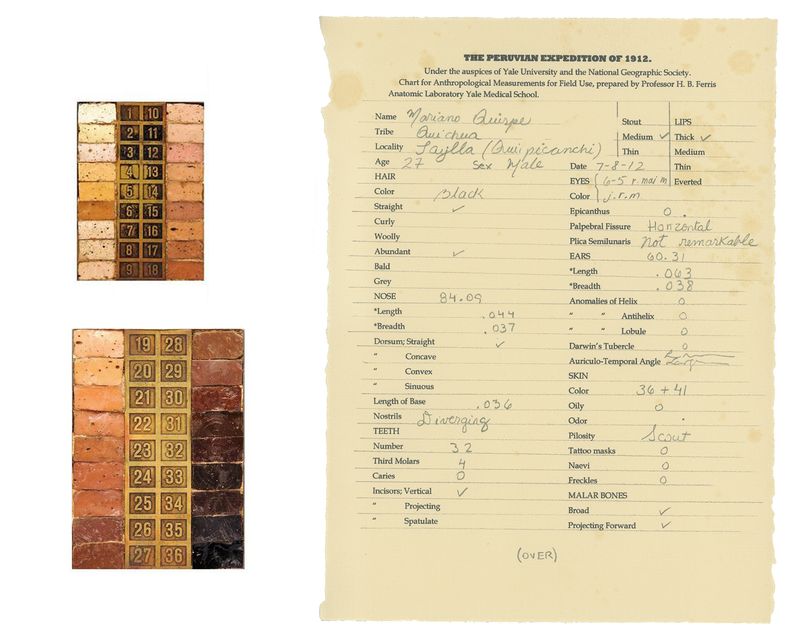 1 10
2 11
3 12
4 13
5 14
6 15
7 16
8 17
9 18
19 28
20 29
21 30
22 31
23 32
24 33
25 34
26 35
27 36
THE PERUVIAN EXPEDITION OF 1912.
Under the auspices of Yale University and the National Geographic Society.
Chart for Anthropological Measurements for Field Use, prepared by Professor H. B. Ferris
Anatomic Laboratory Yale Medical School.
Name Mariano Quispe
Tribe Quichua
Locality (Quispicanchi)
Age 27 Sex Male
HAIR
Color Black
Straight ✓
Curly
Woolly
Abundant ✓
Bald
Grey
NOSE 84.09
*Length .044
*Breadth .037
Dorsum; Straight ✓
" Concave
" Convex
" Sinuous
Length of Base .036
Nostrils Diverging
TEETH
Number 32
Third Molars 4
Caries 0
Incisors; Vertical ✓
" Projecting
" Spatulate
Stout LIPS
Medium ✓ Thick ✓
Thin Medium
Date 7-8-12 Thin
EYES 6-5 r. Everted
Color j.r.m
Epicanthus 0
Palpebral Fissure Horizontal
Plica Semilunaris Not remarkable
EARS 60.31
*Length .063
*Breadth .038
Anomalies of Helix 0
" " Antihelix 0
" " Lobule 0
Darwin's Tubercle 0
Auriculo-Temporal Angle
SKIN
Color 36 + 41
Oily 0
Odor
Pilosity Scout
Tattoo masks 0
Naevi 0
Freckles 0
MALAR BONES
Broad ✓
Projecting Forward ✓
(OVER)